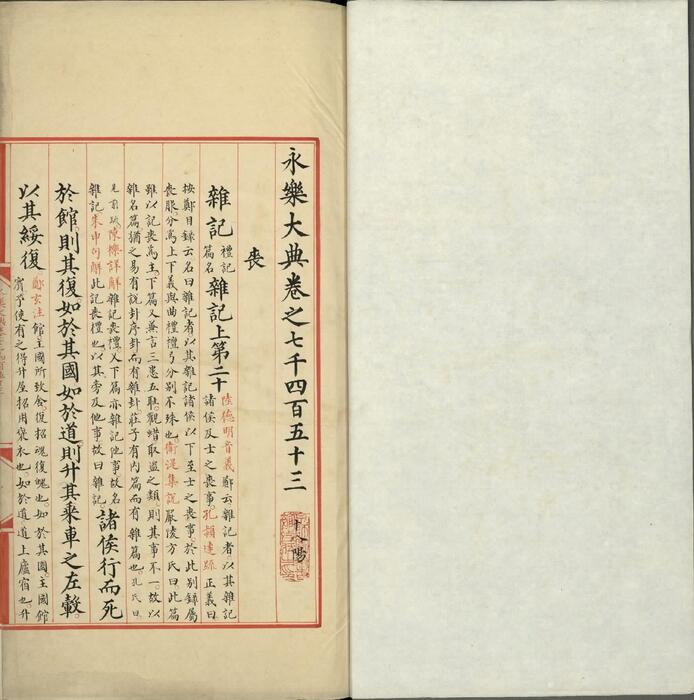 永樂大典卷之七千四百五十三 十八陽
喪
雜記 禮記篇名 雜記上第二十 陸德明音義鄭云雜記者以其雜記諸侯及士之喪事孔穎達疏正義曰
按鄭目錄云名曰雜記者以其雜記諸侯以下至士之喪事於此別錄屬
喪服分爲上下義與曲禮檀弓分別不殊也衛湜集說嚴陵方氏曰此篇
雖以記喪爲主下篇又兼言三患五恥觀蜡取盜之類則其事不一故以
雜名篇猶之易有說卦序卦而有雜卦莊子有內篇而有雜篇也孔氏曰
見前疏陳櫟詳解雜記喪禮又下篇亦雜記他事故名
雜記朱申句解此記喪禮也以其旁及他事故曰雜記 諸侯行而死
於館則其復如於其國如於道則升其乘車之左轂
以其綏復 鄭玄注館主國所致舍復招魂復魄也如於其國主國館
賓予使有之得升屋招用襃衣也如於道道上廬宿也升